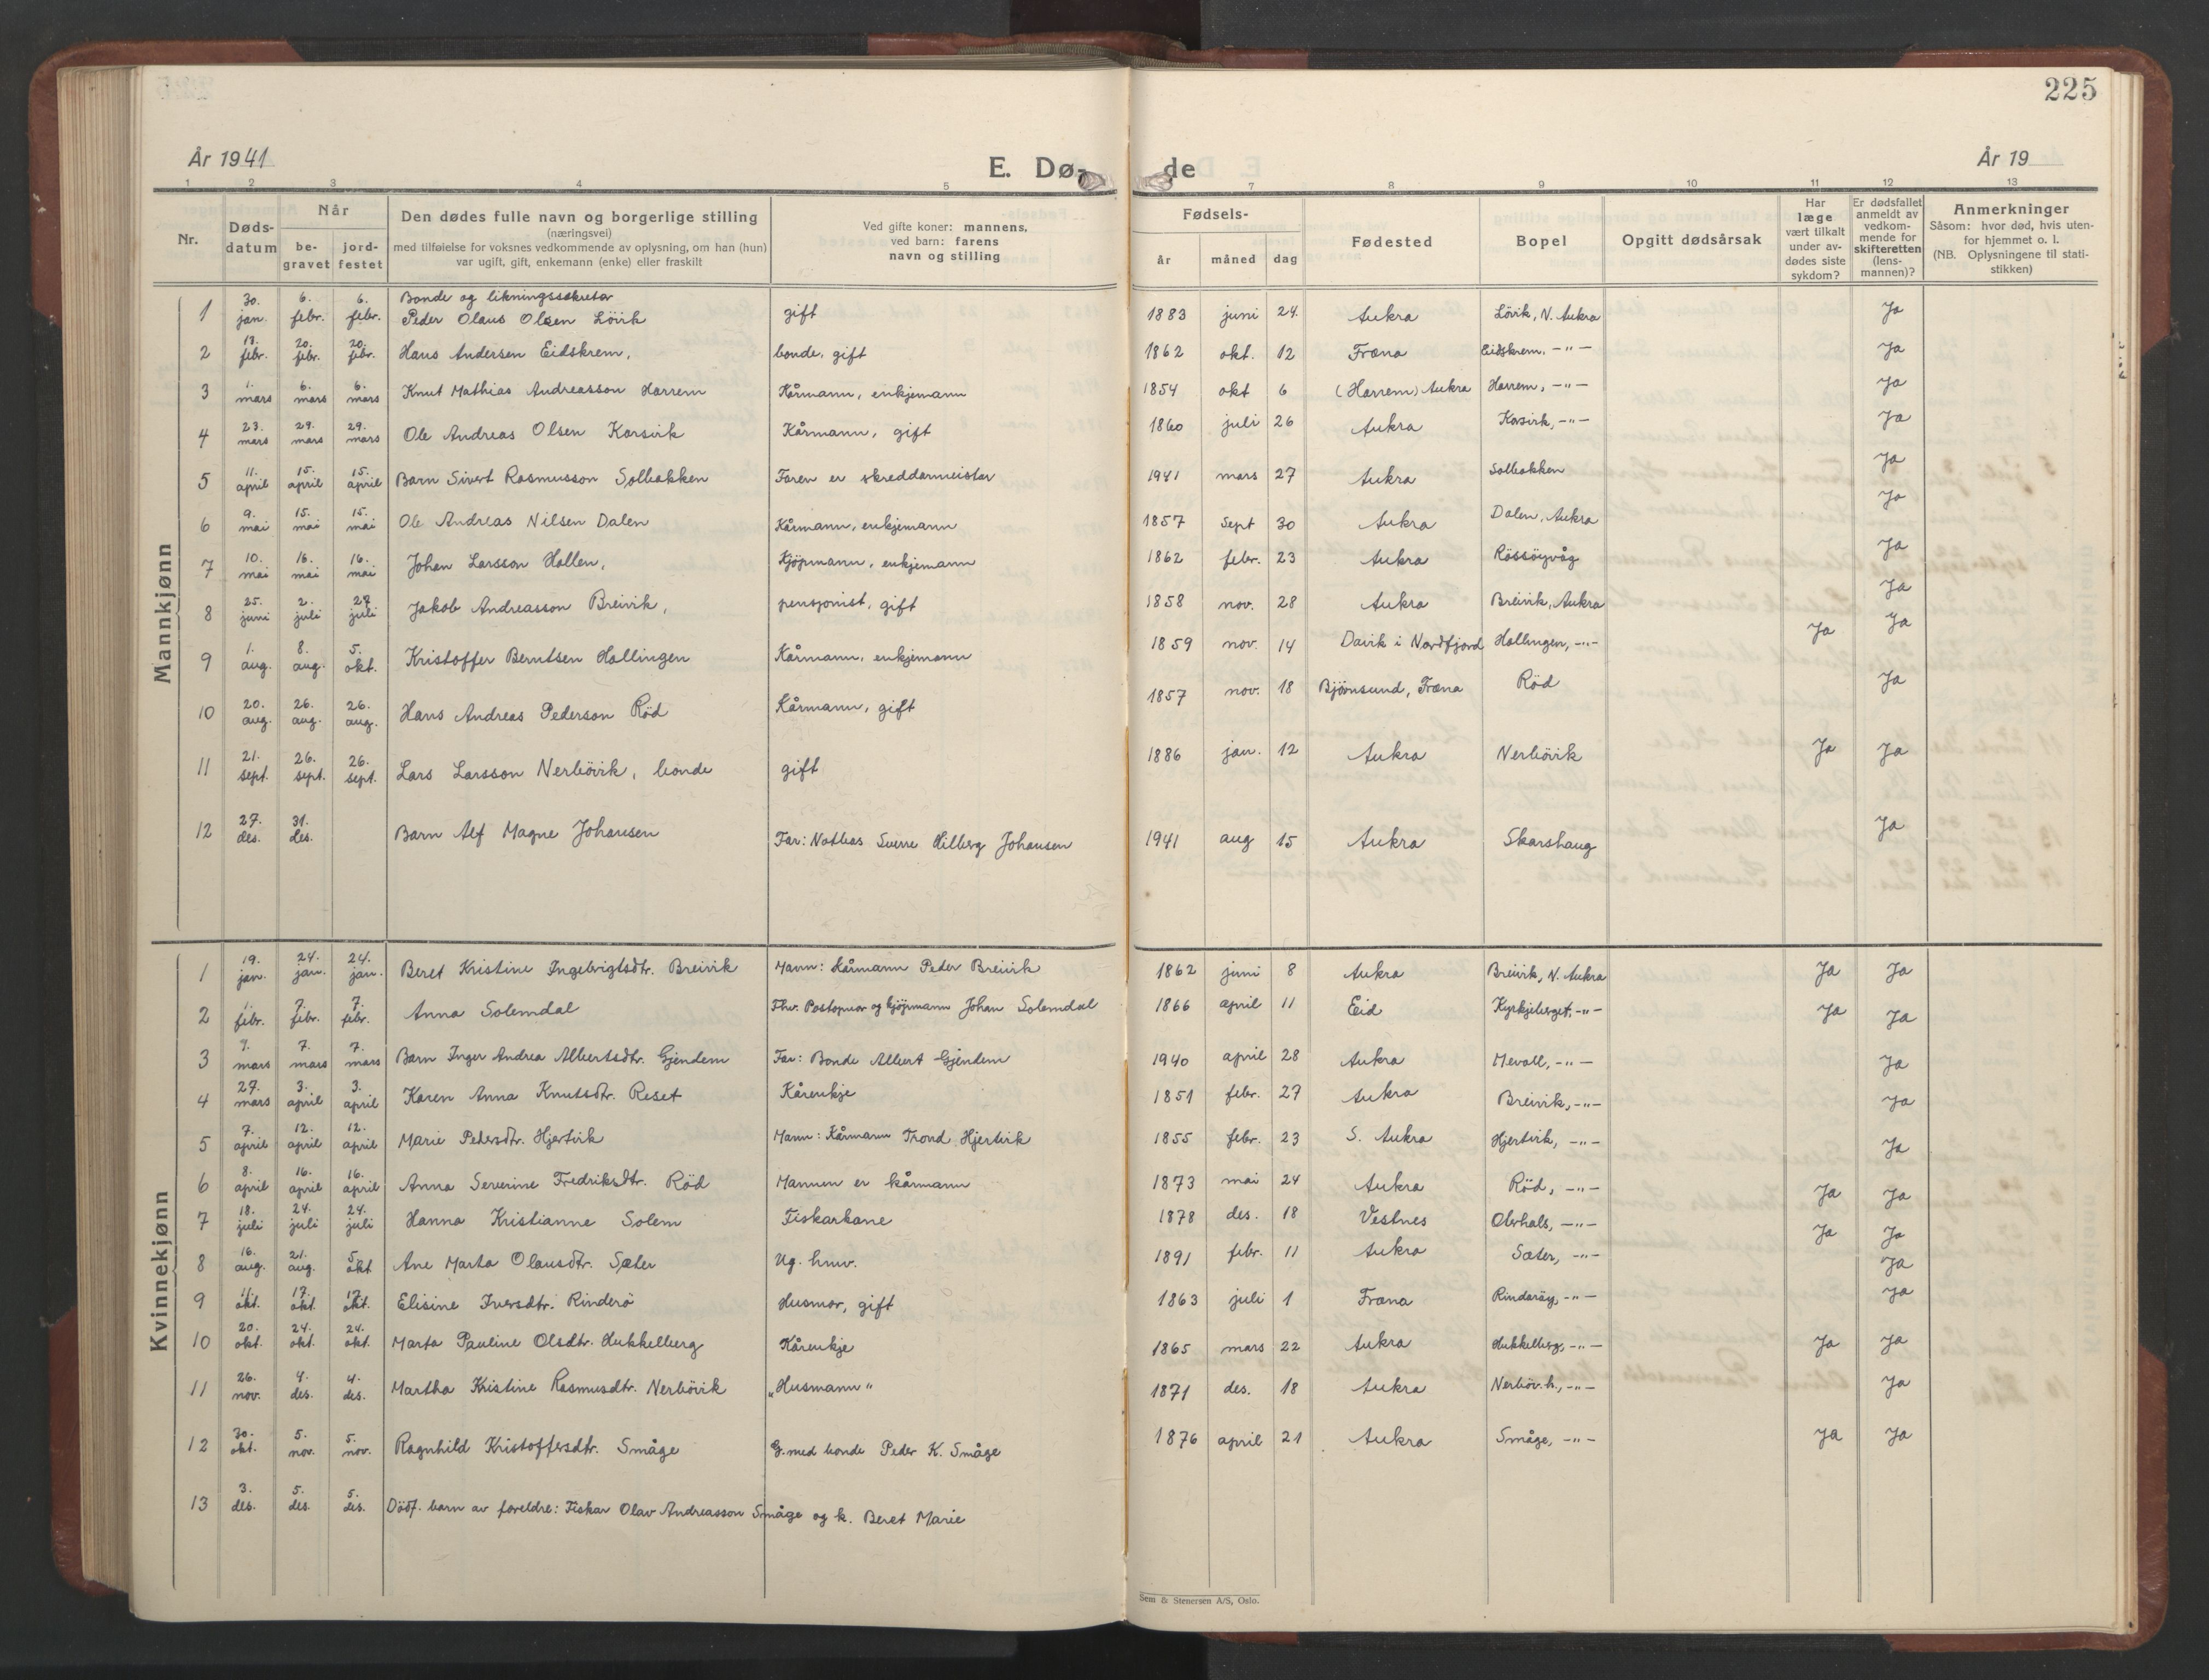 225
År 1941
E. Dø- de
År 19
1 2 3 4 5 7 8 9 10 11 12 13
Nr.
Døds-
datum
Når
be-
gravet
jord-
festet
Den dødes fulle navn og borgerlige stilling
(næringsvei)
med tilføielse for voksnes vedkommende av oplysning, om han (hun)
var ugift, gift, enkemann (enke) eller fraskilt
Ved gifte koner: mannens,
ved barn: farens
navn og stilling
Fødsels-
år måned dag
Fødested
Bopel
Opgitt dødsårsak
Har
læge
vært tilkalt
under av-
dødes siste
sykdom?
Er dødsfallet
anmeldt av
vedkom-
mende for
skifteretten
(lens-
mannen)?
Anmerkninger
Såsom: hvor død, hvis uten-
for hjemmet o. l.
(NB. Oplysningene til stati-
stikken)
Mannkjønn
1 30. jan. 6. febr. 6. febr. Bonde og likningssekretær
Peder Olaus Olsen Lövik gift 1883 juni 24. Aukra Lövik, N. Aukra Ja
2 13. febr. 20. febr. 20. febr. Hans Andersen Eidskrem, bonde, gift 1862 okt. 12 Fræna Eidskrem, -"- Ja
3 1. mars 6. mars 6. mars Knut Mathias Andreasson Harrem Kårmann, enkjemann 1854 okt 6 (Harrem) Aukra Harrem, -"- Ja
4 23. mars 29. mars 29. mars Ole Andreas Olsen Korsvik Kårmann, gift 1860 juli 26 Aukra Korsvik, -"- Ja
5 11. april 15. april 15. april Barn Sivert Rasmusson Solbakken Faren er skreddarmeister 1941 mars 27 Aukra Solbakken Ja
6 9. mai 15. mai 15. mai Ole Andreas Nilsen Dalen Kårmann, enkjemann 1857 Sept 30 Aukra Dalen, Aukra Ja
7 10. mai 16. mai 16. mai Johan Larsson Hallen, Kjöpmann, enkjemann 1862 febr. 23 Aukra Rössöyvåg Ja
8 25. juni 2. juli 27 juli Jakob Andreasson Breivik, pensjonist, gift 1858 nov. 28 Aukra Breivik, Aukra Ja
9 1. aug. 8. aug. 5. okt. Kristoffer Berntsen Hollingen Kårmann, enkjemann 1859 nov. 14 Davik i Nordfjord Hollingen, -"- Ja Ja
10 20. aug. 26. aug. 26. aug. Hans Andreas Pederson Röd Kårmann, gift 1857 nov. 18 Björnsund, Fræna Röd Ja
11 21. sept. 26. sept. 26. sept. Lars Larsson Nerbövik, bonde gift 1886 jan. 12 Aukra Nerbövik Ja Ja
12 27. des. 31. des. Barn Alf Magne Johansen Far: Sverre Hilberg Johansen 1941 aug 15 Aukra Skarshaug Ja
Kvinnekjønn
1 19. jan. 24. jan. 24. jan. Beret Kristine Ingebrigtsdtr. Breivik Mann: Kårmann Peder Breivik 1862 juni 8 Aukra Breivik, N. Aukra Ja Ja
2 1. febr. 7. febr. 7. febr. Anna Solemdal Fhv. Postopnar og kjöpmann Johan Solemdal 1866 april 11 Eid Kyrkjeberget, -"- Ja Ja
3 mars 7. mars 7. mars Barn Inger Andrea Albertsdtr. Gjendem Far: Bonde Albert Gjendem 1940 april 28 Aukra Mevoll, -"- Ja
4 27. mars 3. april 3. april Karen Anna Knutsdtr. Reset Kårenkje 1851 febr. 27 Aukra Breivik, -"- Ja
5 7. april 12. april 12. april Marie Pedersdtr. Hjertvik Mann: Kårmann Trond Hjertvik 1855 febr. 23 S. Aukra Hjertvik, -"- Ja
6 8. april 16. april 16. april Anna Severine Fredriksdtr. Röd Mannen er kårmann 1873 mai 24 Aukra Röd, -"- Ja Ja
7 18. juli 24. juli 24. juli Hanna Kristianne Solem Fiskarkone 1878 des. 18 Vestnes Oterhals, -"- Ja Ja
8 16. aug. 21. aug. 5. okt Ane Marta Olausdtr. Sæter Ug. hmv. 1891 febr. 11 Aukra Sæter, -"- Ja
9 11. okt. 17. okt. 17. okt. Elisine Iversdtr. Rinderö Husmor, gift 1863 juli 1 Fræna Rindaröy, -"- Ja
10 20. okt. 24. okt. 24. okt. Marta Pauline Olsdtr. Hukkelberg Kårenkje 1865 mars 22 Aukra Hukkelberg, -"- Ja Ja
11 26. nov. 4. des. 4. des. Martha Kristine Rasmusdtr. Nerbövik „Husmann" 1871 des. 18 Aukra Nerböv.k., -"- Ja
12 30. okt. 5. nov. 5. nov. Ragnhild Kristoffersdtr. Småge G. med bonde Peder K. Småge 1876 april 21 Aukra Småge, -"- Ja Ja
13 3. des. 5. des. 5. des. Dödf. barn av foreldre: Fiskar Olav Andreasson Småge og k. Beret Marie
Sem & Stenersen A/S, Oslo.